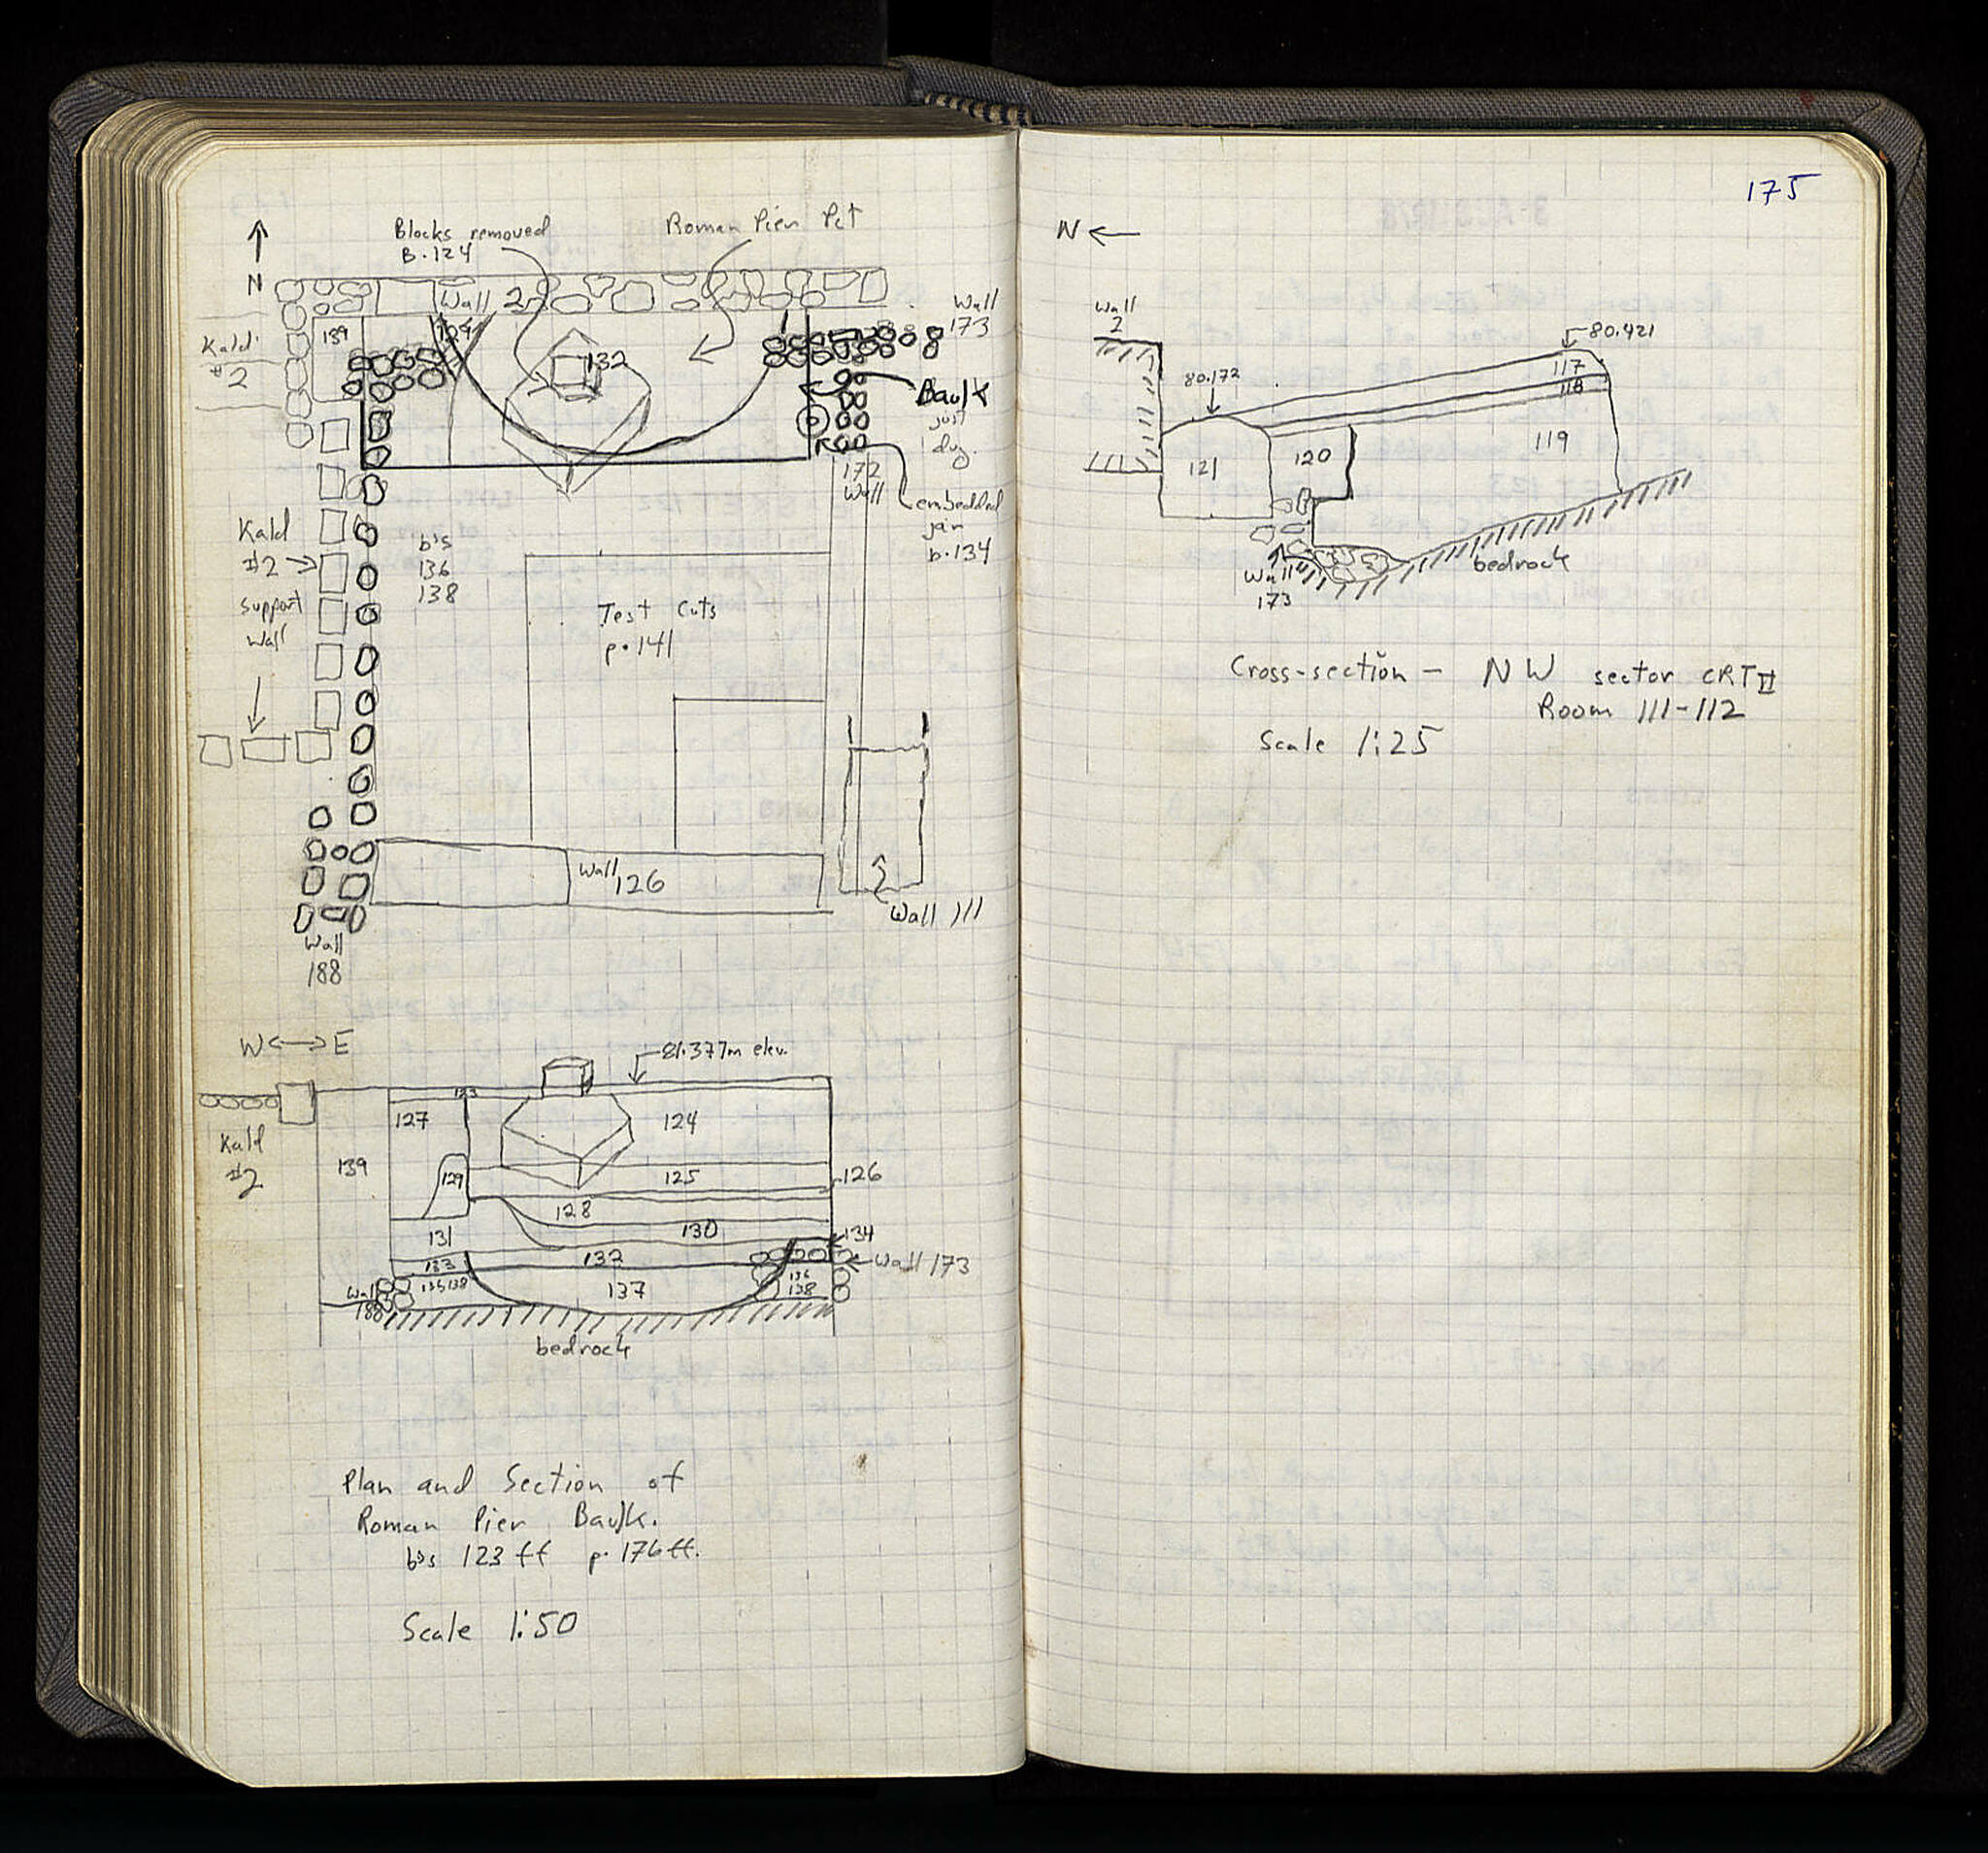 Blocks removed
B.124
Roman Pier Pit
N
Wall 2
Wall
173
Kald.
#2
139
129
132
Baulk
just
dug.
172
Wall
embedded
jar
b.134
Kald
#2
support
wall
b's
136
138
Test Cuts
p. 141
Wall 126
Wall 111
Wall
188
W E
81.377m elev.
123
127
124
Kald
#2
139
129
125
126
128
131
130
134
133
132
Wall 173
Wall
188
135 138
137
136
138
bedrock
Plan and Section of
Roman Pier Baulk.
b's 123 ff p. 176 ff.
Scale 1:50
175
N
Wall
2
80.421
80.172
117
118
121
120
119
bedrock
Wall
173
Cross-section - NW sector CRT II
Room 111-112
Scale 1:25